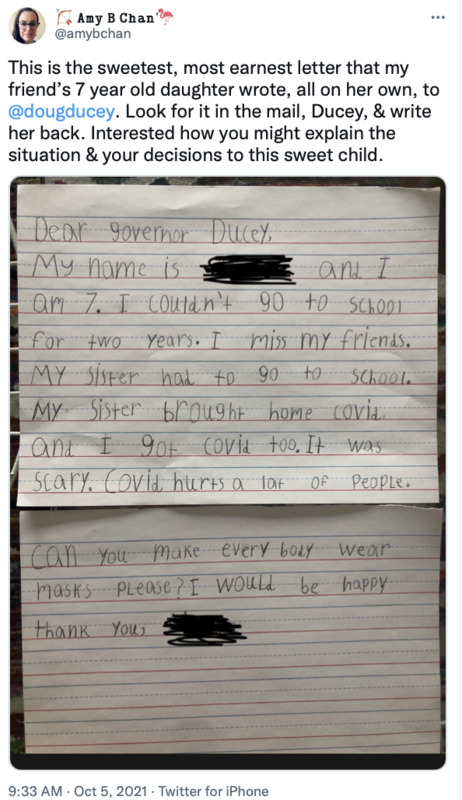 Amy B Chan
@amybchan
This is the sweetest, most earnest letter that my
friend's 7 year old daughter wrote, all on her own, to
@dougducey. Look for it in the mail, Ducey, & write
her back. Interested how you might explain the
situation & your decisions to this sweet child.
Dear governor Ducey,
My name is and I
am 7. I couldn't go to school
for two years. I miss my friends.
My sister had to go to school.
My sister brought home covid
and I got covid too. It was
scary. Covid hurts a lot of people.
Can you make every body wear
masks please? I would be happy
thank you,
9:33 AM · Oct 5, 2021 · Twitter for iPhone